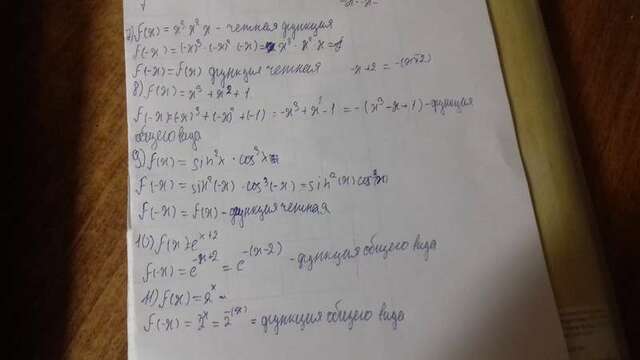 7) f(x) = x³ · x² · x - четная функция
f(-x) = (-x)³ · (-x)² · (-x) = x³ · x² · x =
f(-x) = f(x) функция четная -x+2 = -(x-2)
8) f(x) = x³ + x² + 1
f(-x) = (-x)³ + (-x)² + (-1) = -x³ + x² - 1 = -(x³ - x + 1) - функция
общего вида
9) f(x) = sin²x · cos³x
f(-x) = sin²(-x) · cos³(-x) = sin²(x) cos³x
f(-x) = f(x) - функция четная
10) f(x) = e^(x+2)
f(-x) = e^(-x+2) = e^(-(x-2)) - функция общего вида
11) f(x) = 2^x -
f(-x) = 2^(-x) = 2^(-(x)) = функция общего вида